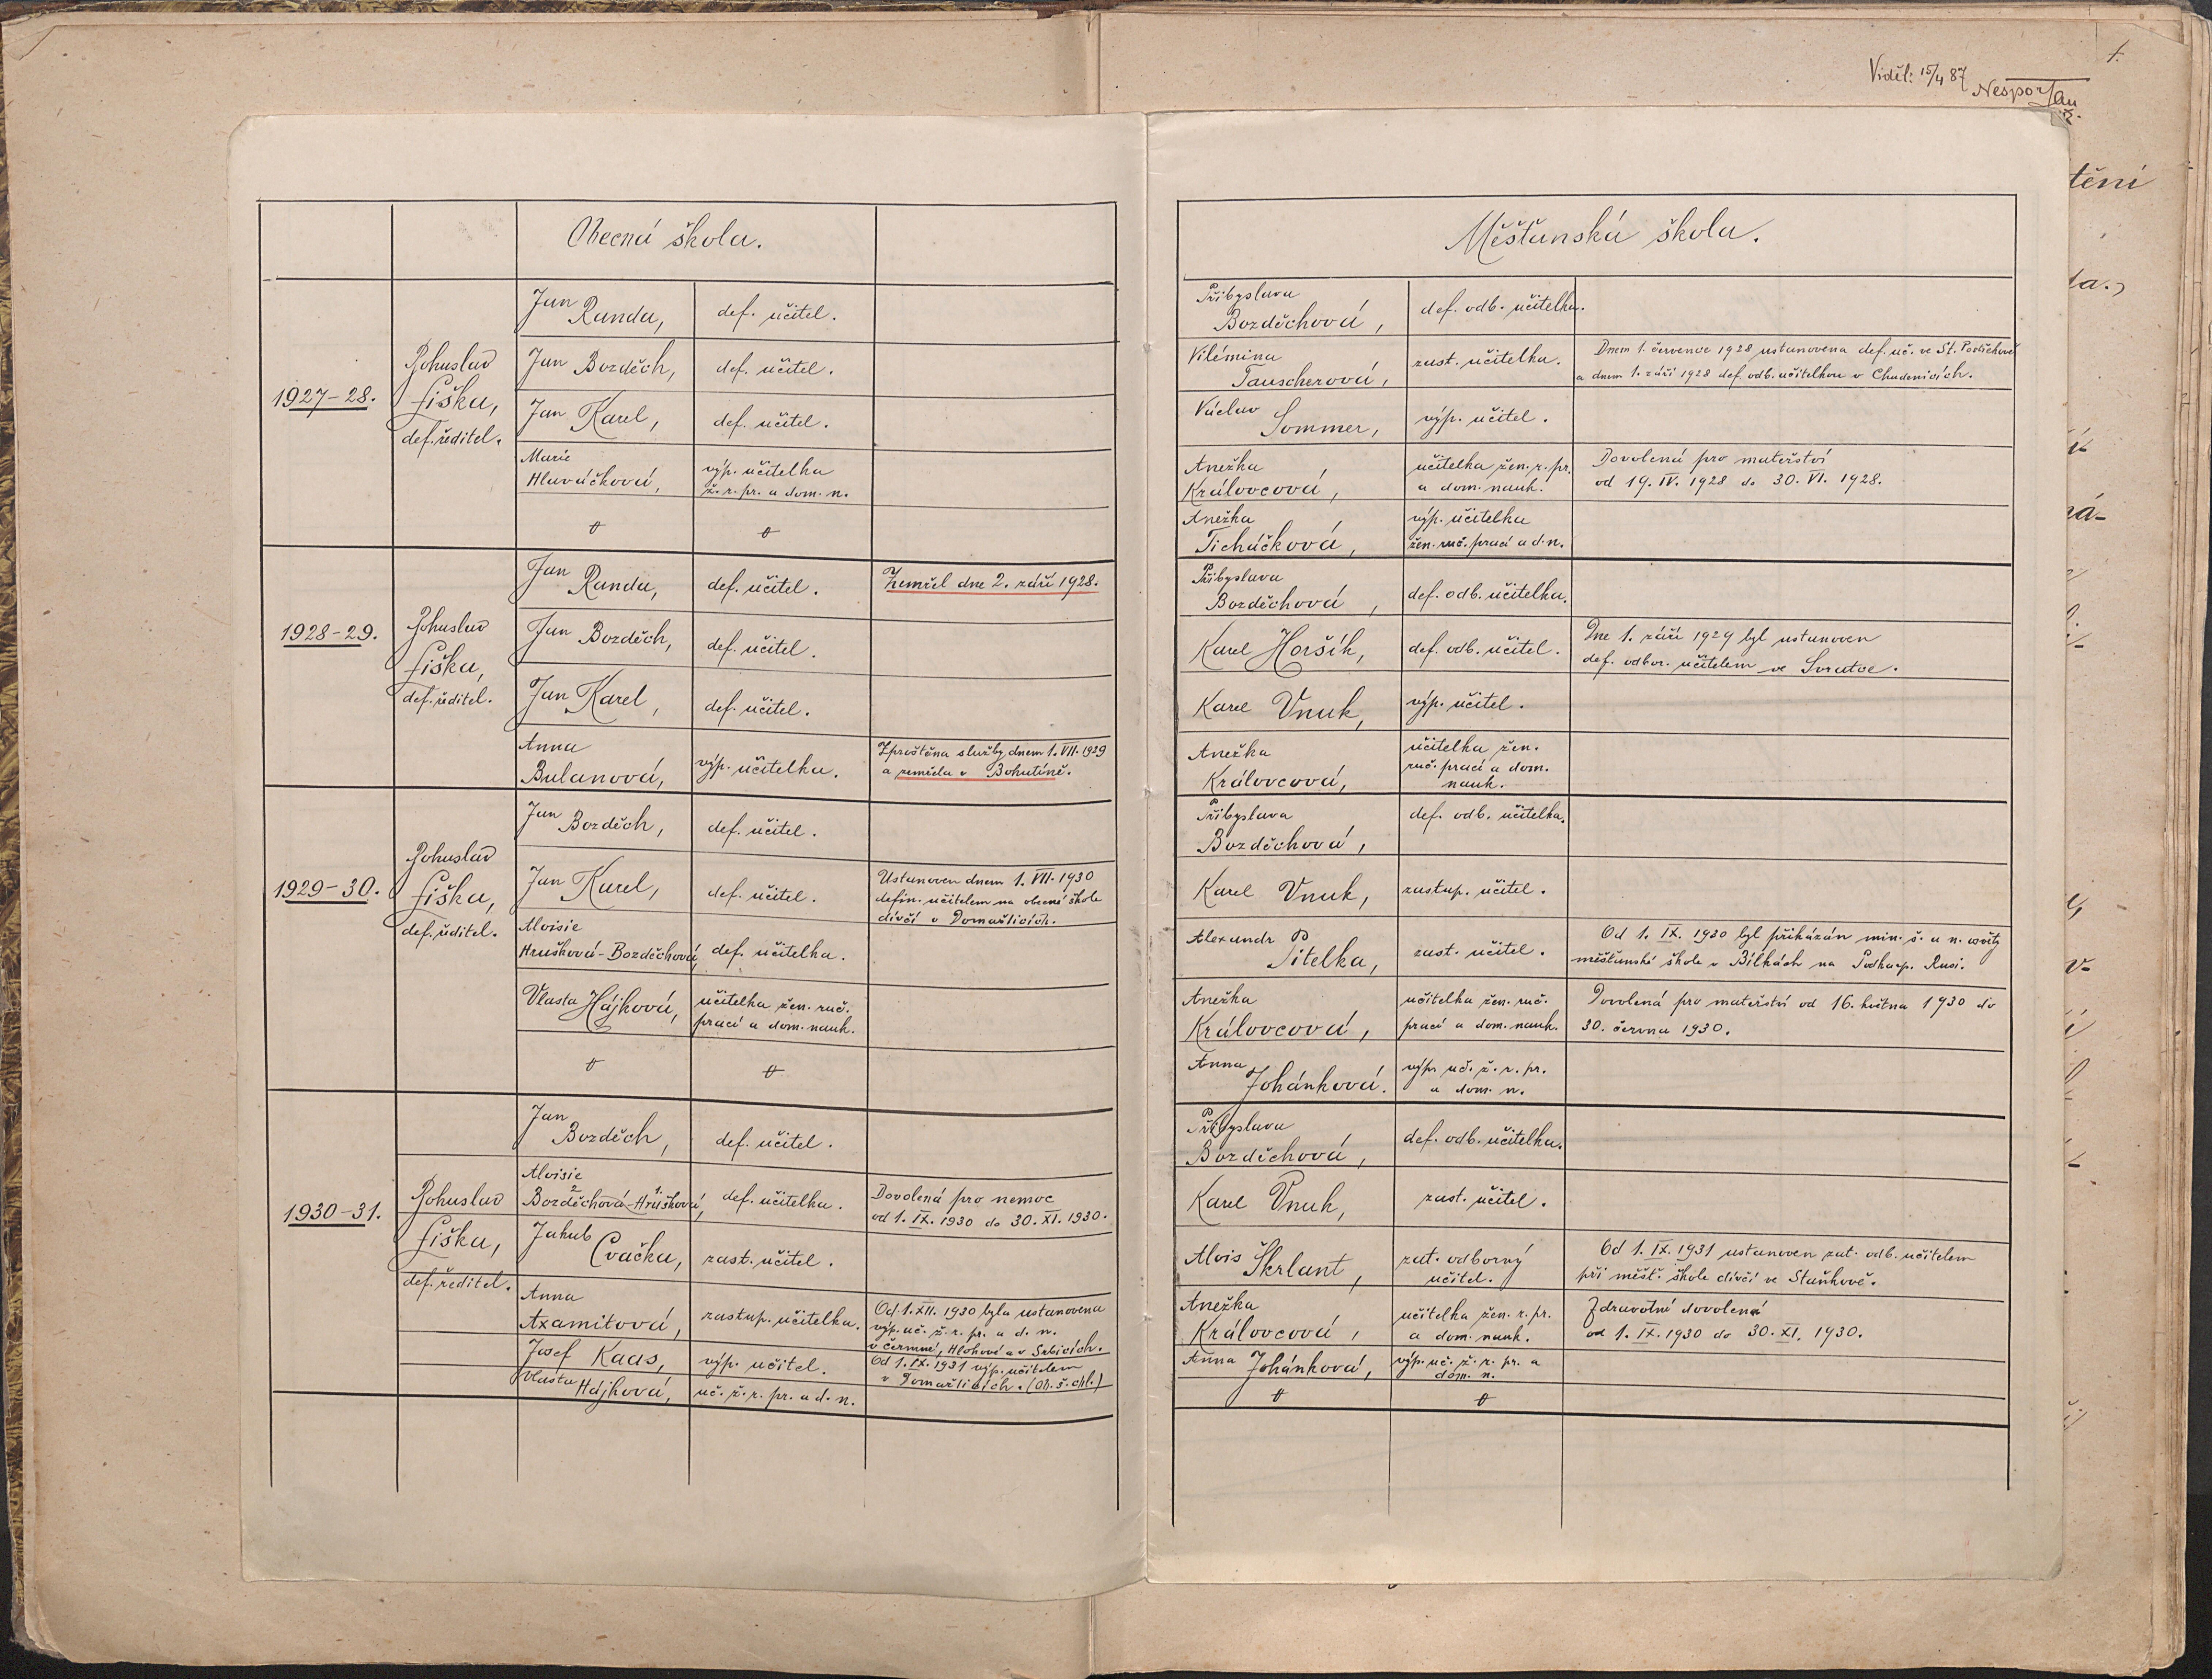 1.
Viděl: 15/4 87 Nespor
Obecná škola.
1927-28.
Bohuslav
Liška,
def. ředitel.
Jan
Randa,
def. učitel.
Jan Bozděch,
def. učitel.
Jan Karel,
def. učitel.
Marie
Hlaváčková,
výp. učitelka
ž. r. pr. a dom. n.
1928-29.
Bohuslav
Liška,
def. ředitel.
Jan
Randa,
def. učitel.
Zemřel dne 2. září 1928.
Jan Bozděch,
def. učitel.
Jan Karel,
def. učitel.
Anna
Bulanová,
výp. učitelka.
Zproštěna služby dnem 1. VII. 1929
a zemřela v Bohutíně.
1929-30.
Bohuslav
Liška,
def. ředitel.
Jan
Bozděch,
def. učitel.
Jan Karel,
def. učitel.
Ustanoven dnem 1. VII. 1930
defin. učitelem na obecné škole
dívčí v Domažlicích.
Aloisie
Hrušková-Bozděchová,
def. učitelka.
Vlasta Hájková,
učitelka žen. ruč.
prací a dom. nauk.
1930-31.
Bohuslav
Liška,
def. ředitel.
Jan
Bozděch,
def. učitel.
Aloisie
2 1.
Bozděchová-Hrušková,
def. učitelka.
Dovolená pro nemoc
od 1. IX. 1930 do 30. XI. 1930.
Jakub
Cvačka,
zast. učitel.
Anna
Axamitová,
zastup. učitelka.
Od 1. XII. 1930 byla ustanovena
výp. uč. ž. r. pr. a d. n.
v Čermné, Hlohové a v Srbicích.
Josef Kaas,
výp. učitel.
Od 1. IX. 1931 výp. učitelem
v Domažlicích. (Ob. š. chl.)
Vlasta
Hájková,
uč. ž. r. pr. a d. n.
Měšťanská škola.
Přibyslava
Bozděchová,
def. odb. učitelka.
Vilémina
Tauscherová,
zast. učitelka.
Dnem 1. července 1928 ustanovena def. uč. ve St.
a dnem 1. září 1928 def. odb. učitelkou v Chudenicích.
Václav
Sommer,
výp. učitel.
Anežka
Královcová,
učitelka žen. r. pr.
a dom. nauk.
Dovolená pro mateřství
od 19. IV. 1928 do 30. VI. 1928.
Anežka
Ticháčková,
výp. učitelka
žen. ruč. prací a d. n.
Přibyslava
Bozděchová,
def. odb. učitelka.
Karel Horšík,
def. odb. učitel.
Dne 1. září 1929 byl ustanoven
def. odbor. učitelem ve Svratce.
Karel Vnuk,
výp. učitel.
Anežka
Královcová,
učitelka žen.
ruč. prací a dom.
nauk.
Přibyslava
Bozděchová,
def. odb. učitelka.
Karel Vnuk,
zastup. učitel.
Alexandr
Pitelka,
zast. učitel.
Od 1. IX. 1930 byl přikázán min. š. a n. osvěty
měšťanské škole v Bílkách na Podkarp. Rusi.
Anežka
Královcová,
učitelka žen. ruč.
prací a dom. nauk.
Dovolená pro mateřství od 16. května 1930 do
30. června 1930.
Anna
Johánková.
výp. uč. ž. r. pr.
a dom. n.
Přibyslava
Bozděchová,
def. odb. učitelka.
Karel Vnuk,
zast. učitel.
Alois Škrlant,
zat. odborný
učitel.
Od 1. IX. 1931 ustanoven zat. odb. učitelem
při měšť. škole dívčí ve Staňkově.
Anežka
Královcová,
učitelka žen. r. pr.
a dom. nauk.
Zdravotní dovolená
od 1. IX. 1930 do 30. XI. 1930.
Anna Johánková,
výp. uč. ž. r. pr. a
dom. n.